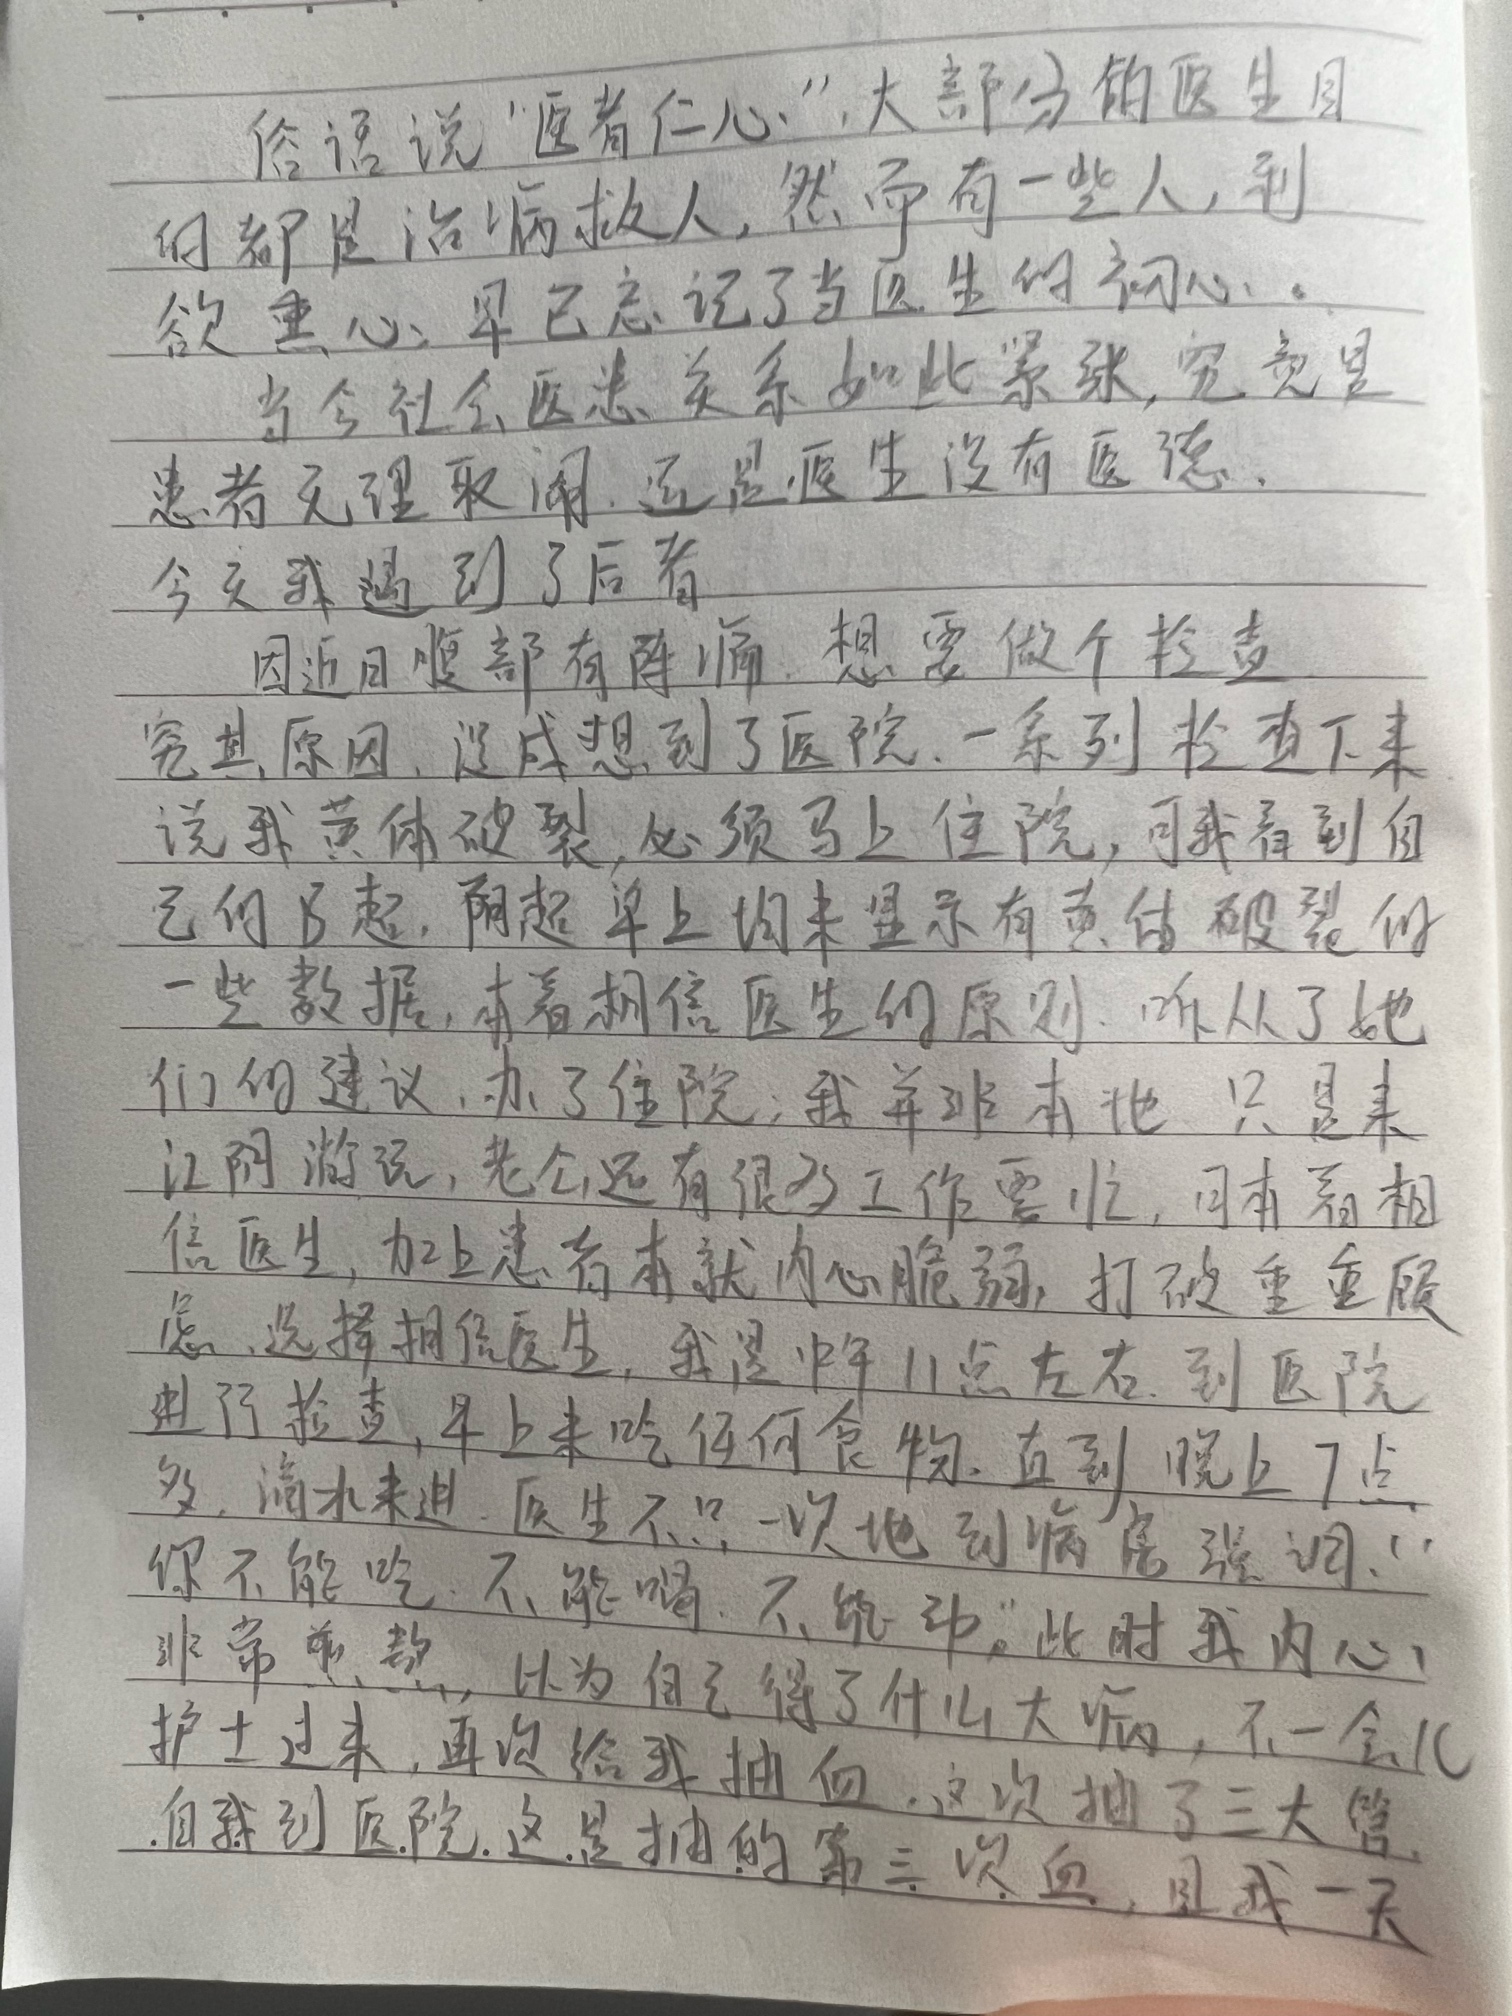 俗语说“医者仁心”,大部分的医生目
的都是治病救人,然而有一些人,利
欲熏心、早已忘记了当医生的初心。
当今社会医患关系如此紧张,究竟是
患者无理取闹.还是医生没有医德.
今天我遇到了后者
因近日腹部有阵痛.想要做个检查
究其原因,没成想到了医院.一系列检查下来
说我黄体破裂,必须马上住院,可我看到自
己的B超.阴超单上均未显示有黄体破裂的
一些数据,本着相信医生的原则.听从了她
们的建议,办了住院,我并非本地 只是来
江阴游玩,老仝还有很多工作要忙,可本着相
信医生,加上患者本就内心脆弱,打破重重顾
虑.选择相信医生,我是中午11点左右.到医院
进行检查,早上未吃任何食物.直到晚上7点
多.滴水未进.医生不只一次地到病房强调:“
你不能吃.不能喝.不能动。”此时我内心
非常煎熬,以为自己得了什么大病,不一会儿
护士过来,再次给我抽血.这次抽了三大管.
自我到医院.这是抽的第三次血,且我一天